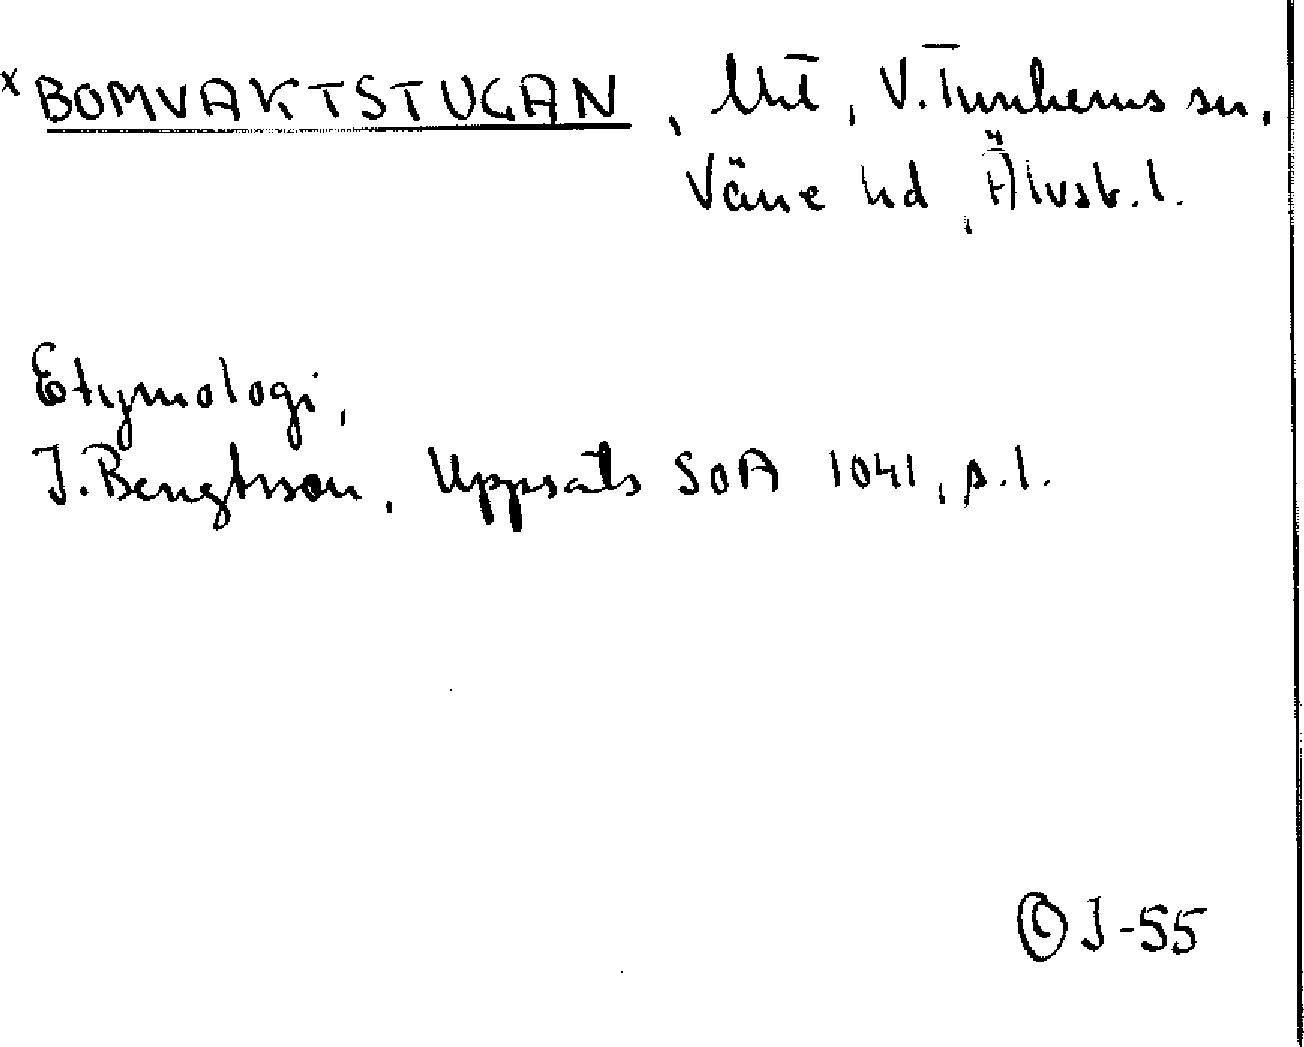 x BOMVAKTSTUGAN, Utí, V. Tunhems sn,
Väne hd, Älvsb. l.
Etymologi,
J. Bengtsson, Uppsats SOA 1041, s. 1.
© J-55